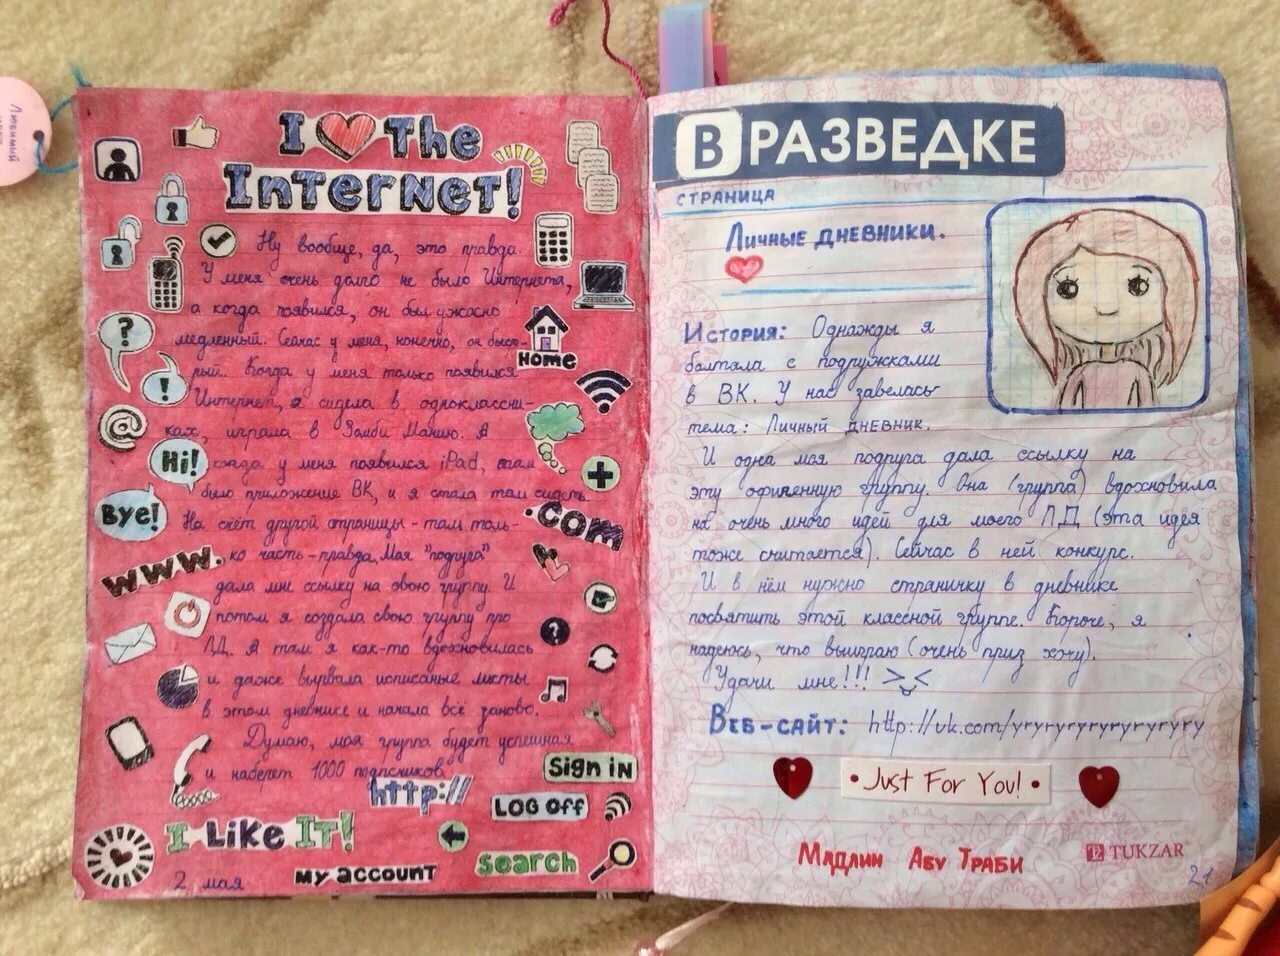 Любимый
I The
Internet!
Ну вообще, да, это правда.
У меня очень долго не было Интернета,
а когда появился, он был ужасно
медленный. Сейчас у меня, конечно, он быст-
рый. Когда у меня только появился
Интернет, я сидела в одноклассни-
ках, играла в Зомби Манию. А
когда у меня появился iPad, там
было приложение ВК, и я стала там сидеть.
На счёт другой страницы - там толь-
ко часть - правда. Моя "подруга"
дала мне ссылку на свою группу. И
потом я создала свою группу про
ЛД. А там я как-то вдохновилась
и даже вырвала исписаные листы
в этом дневнике и начала всё заново.
Думаю, моя группа будет успешная
и наберёт 1000 подпсчиков.
Home
?
!
@
Hi!
Bye!
.com
www.
?
Sign in
http://
LOG OFF
I Like It!
search
my account
2 мая
В РАЗВЕДКЕ
СТРАНИЦА
Личные дневники.
История: Однажды я
болтала с подружками
в ВК. У нас завелась
тема: Личный дневник.
И одна моя подруга дала ссылку на
эту офигенную группу. Она (группа) вдохновила
на очень много идей для моего ЛД (эта идея
тоже считается). Сейчас в ней конкурс.
И в нём нужно страничку в дневнике
посвятить этой классной группе. Короче, я
надеюсь, что выиграю (очень приз хочу).
Удачи мне!!! >‿<
Веб-сайт: http://vk.com/yryryryryryryryryry
• Just For You! •
Мадлин Абу Траби
TUKZAR
21